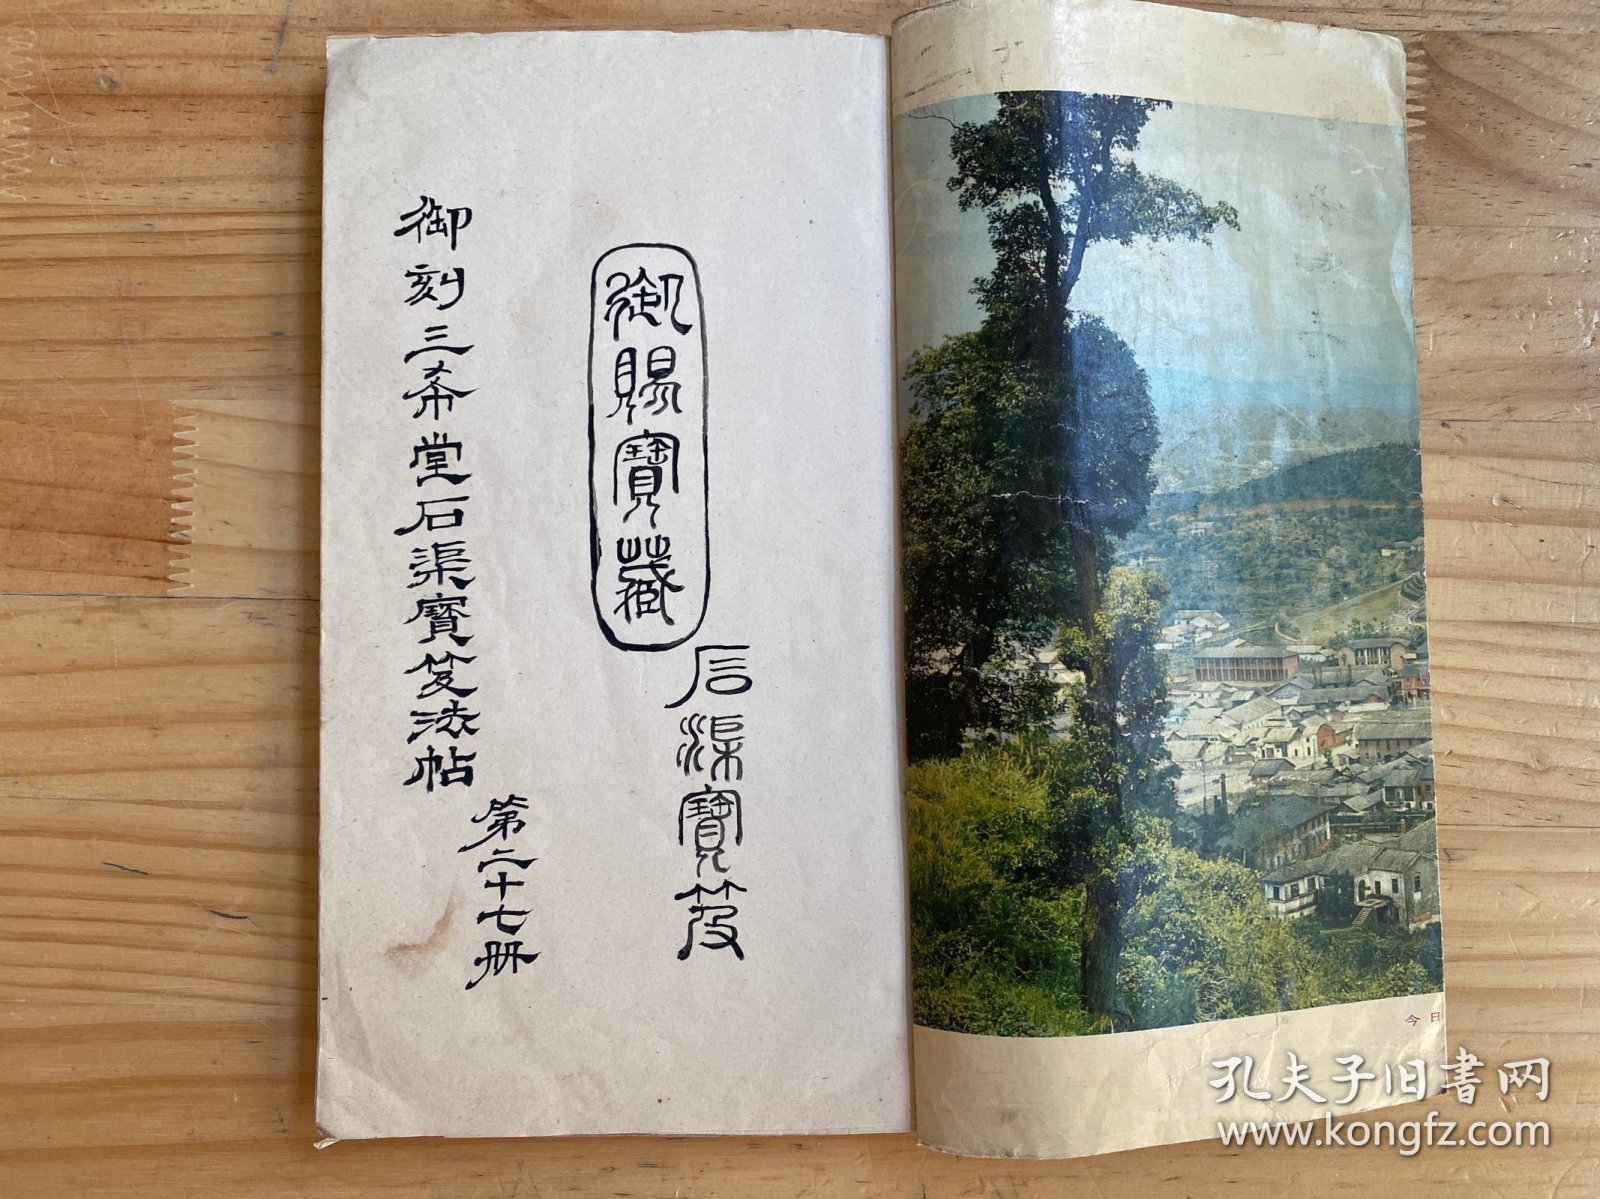 御賜寶藏
石渠寶笈
御刻三希堂石渠寶笈法帖
第二十七冊
今日
孔夫子旧书网
www.kongfz.com